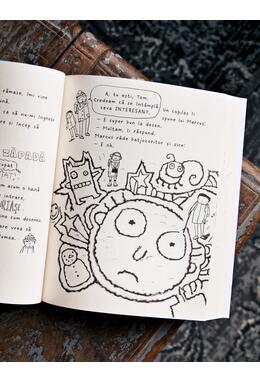 rămase, îmi vine
ură.
că nu-mi înghețe
re și încep să
ZĂPADĂ
upat
acum o haină
intrare.
ine cum desenez.
are vrea să
lumea.
A, tu ești, Tom.
Credeam că se întâmplă
ceva INTERESANT?
Un copilaș îi
spune lui Marcus:
– E super bun la desen.
– Mulțam, îi răspund.
Marcus râde batjocoritor și zice:
– E ok.